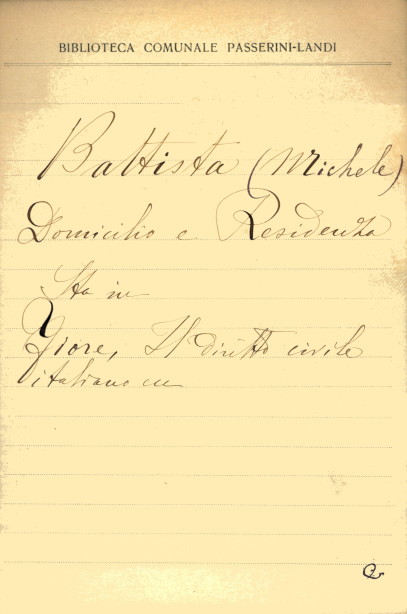 BIBLIOTECA COMUNALE PASSERINI-LANDI
Battista (Michele)
Domicilio e Residenza
Sta in
Fiore, Il diritto civile
italiano